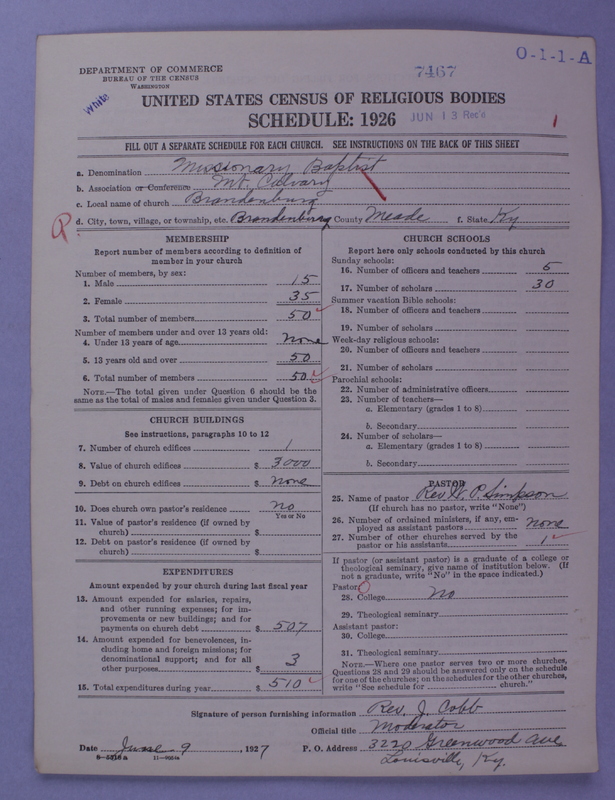 O-1-1-A
DEPARTMENT OF COMMERCE
BUREAU OF THE CENSUS
WASHINGTON
7467
White
UNITED STATES CENSUS OF RELIGIOUS BODIES
SCHEDULE: 1926
JUN 13 Rec'd
1
FILL OUT A SEPARATE SCHEDULE FOR EACH CHURCH. SEE INSTRUCTIONS ON THE BACK OF THIS SHEET
a. Denomination Missionary Baptist
b. Association or Conference Mt. Calvary
c. Local name of church Brandenburg
d. City, town, village, or township, etc. Brandenburg County Meade f. State Ky
R
MEMBERSHIP
Report number of members according to definition of
member in your church
Number of members, by sex:
1. Male 15
2. Female 35
3. Total number of members 50
Number of members under and over 13 years old:
4. Under 13 years of age none
5. 13 years old and over 50
6. Total number of members 50
NOTE.—The total given under Question 6 should be the
same as the total of males and females given under Question 3.
CHURCH BUILDINGS
See instructions, paragraphs 10 to 12
7. Number of church edifices 1
8. Value of church edifices $ 3000
9. Debt on church edifices $ none
10. Does church own pastor's residence? no
Yes or No
11. Value of pastor's residence (if owned by
church) $
12. Debt on pastor's residence (if owned by
church) $
EXPENDITURES
Amount expended by your church during last fiscal year
13. Amount expended for salaries, repairs,
and other running expenses; for im-
provements or new buildings; and for
payments on church debt $ 507
14. Amount expended for benevolences, in-
cluding home and foreign missions; for
denominational support; and for all
other purposes $ 3
15. Total expenditures during year $ 510
CHURCH SCHOOLS
Report here only schools conducted by this church
Sunday schools:
16. Number of officers and teachers 5
17. Number of scholars 30
Summer vacation Bible schools:
18. Number of officers and teachers
19. Number of scholars
Week-day religious schools:
20. Number of officers and teachers
21. Number of scholars
Parochial schools:
22. Number of administrative officers
23. Number of teachers—
a. Elementary (grades 1 to 8)
b. Secondary
24. Number of scholars—
a. Elementary (grades 1 to 8)
b. Secondary
PASTOR
25. Name of pastor Rev. W. P. Simpson
(If church has no pastor, write "None")
26. Number of ordained ministers, if any, em-
ployed as assistant pastors none
27. Number of other churches served by the
pastor or his assistants 1
If pastor (or assistant pastor) is a graduate of a college or
theological seminary, give name of institution below. (If
not a graduate, write "No" in the space indicated.)
Pastor: 0
28. College no
29. Theological seminary
Assistant pastor:
30. College
31. Theological seminary
NOTE.—Where one pastor serves two or more churches,
Questions 28 and 29 should be answered only on the schedule
for one of the churches; on the schedules for the other churches,
write "See schedule for church."
Signature of person furnishing information Rev. J. Cobb
Official title Moderator
Date June 9, 1927 P. O. Address 3220 Greenwood Ave,
Louisville, Ky.